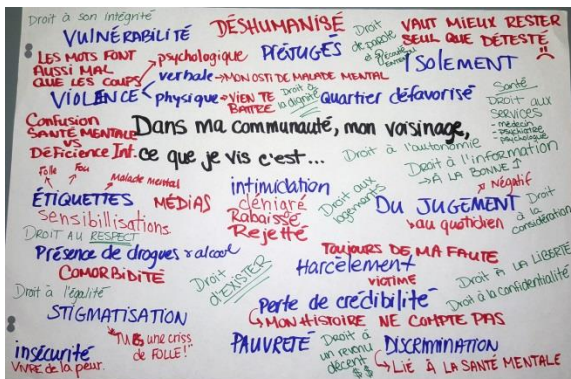 Droit à son intégrité
VULNÉRABILITÉ
DÉSHUMANISÉ
Droit
de parole
et
VAUT MIEUX RESTER
SEUL QUE DÉTESTÉ
LES MOTS FONT
AUSSI MAL
QUE LES COUPS
psychologique
PRÉJUGÉS
ISOLEMENT
verbale → MON OSTI DE MALADE MENTAL
VIOLENCE
physique → VIEN TE
BATTRE
Droit à
la dignité
Quartier défavorisé
Santé
DROIT AUX
SERVICES
- médecin
- psychiatre
- psychologue
Confusion
SANTÉ MENTALE
VS
DÉFICIENCE Int.
Dans ma communauté, mon voisinage,
ce que je vis c'est...
Droit à l'autonomie
Droit à l'information
→ À LA BONNE !
Folle
Fou
Malade mental
ÉTIQUETTES
MÉDIAS
Sensibilisations
intimidation
dénigré
Rabaissé
Rejetté
Droit aux
logements
Négatif
DU JUGEMENT
→ au quotidien
Droit
à la
considération
DROIT AU RESPECT
Présence de drogues & alcool
COMORBIDITÉ
TOUJOURS DE MA FAUTE
Harcèlement
VICTIME
Droit
d'EXISTER
Droit À LA LIBERTÉ
Droit à la confidentialité
Droit à l'égalité
STIGMATISATION
"T'ES une criss
de FOLLE!"
Perte de crédibilité
→ MON HISTOIRE NE COMPTE PAS
insécurité
VIVRE de la peur.
PAUVRETÉ
Droit à
un revenu
décent
$$
DISCRIMINATION
→ LIÉ À LA SANTÉ MENTALE